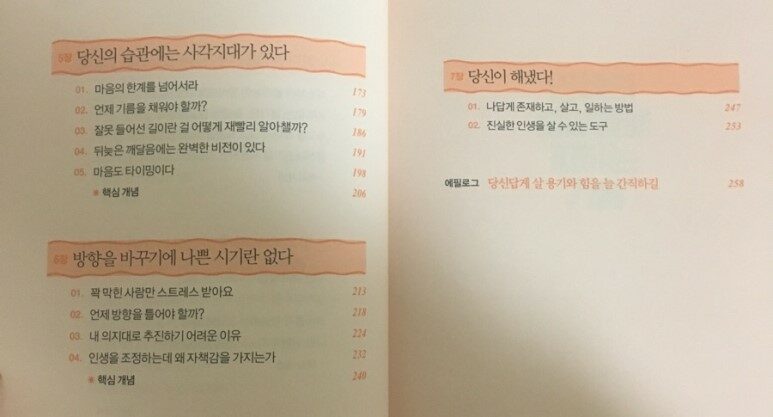 5장 당신의 습관에는 사각지대가 있다
01. 마음의 한계를 넘어서라 173
02. 언제 기름을 채워야 할까? 179
03. 잘못 들어선 길이란 걸 어떻게 재빨리 알아챌까? 186
04. 뒤늦은 깨달음에는 완벽한 비전이 있다 191
05. 마음도 타이밍이다 198
※ 핵심 개념 206
6장 방향을 바꾸기에 나쁜 시기란 없다
01. 꽉 막힌 사람만 스트레스 받아요 213
02. 언제 방향을 틀어야 할까? 218
03. 내 의지대로 추진하기 어려운 이유 224
04. 인생을 조정하는데 왜 자책감을 가지는가 232
※ 핵심 개념 240
7장 당신이 해냈다!
01. 나답게 존재하고, 살고, 일하는 방법 247
02. 진실한 인생을 살 수 있는 도구 253
에필로그 당신답게 살 용기와 힘을 늘 간직하길 258